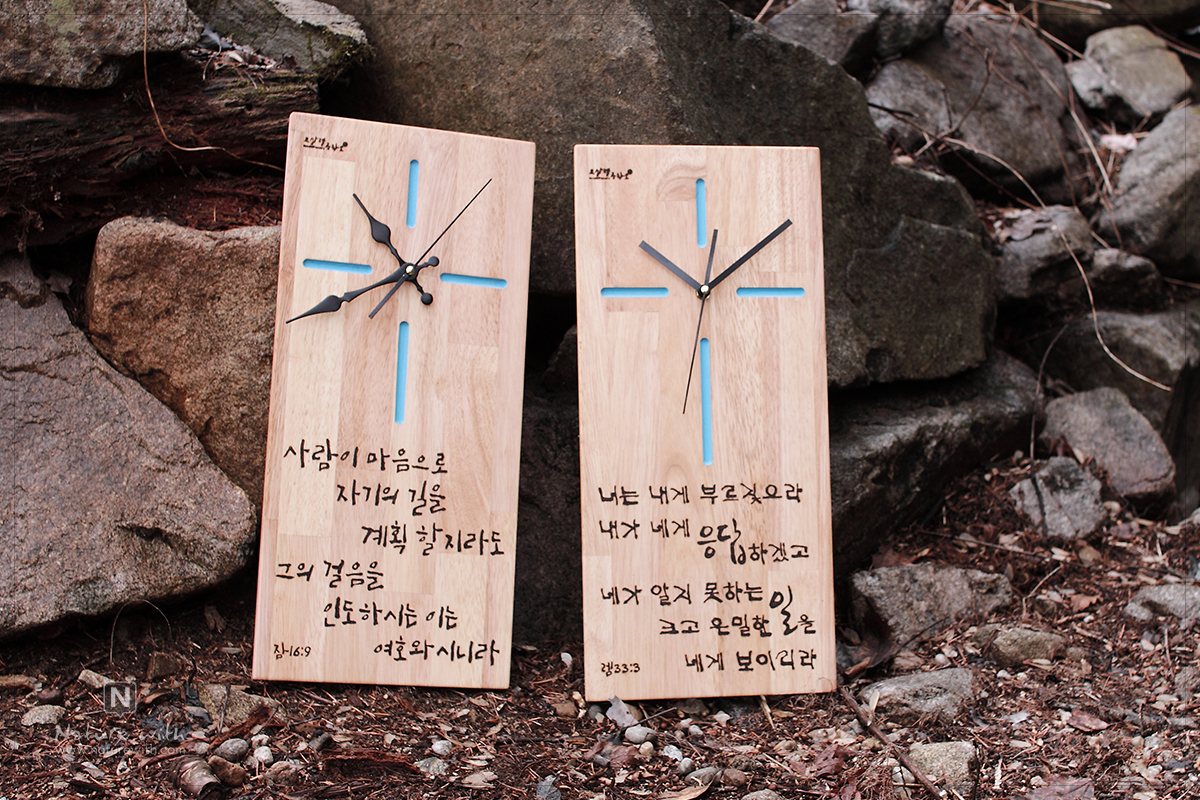 사람이 마음으로
자기의 길을
계획 할지라도
그의 걸음을
인도하시는 이는
여호와 시니라
잠-16:9
너는 내게 부르짖으라
내가 네게 응답하겠고
네가 알지 못하는
크고 은밀한 일을
네게 보이리라
렘33:3
N
Nature with
www.naturewith.com